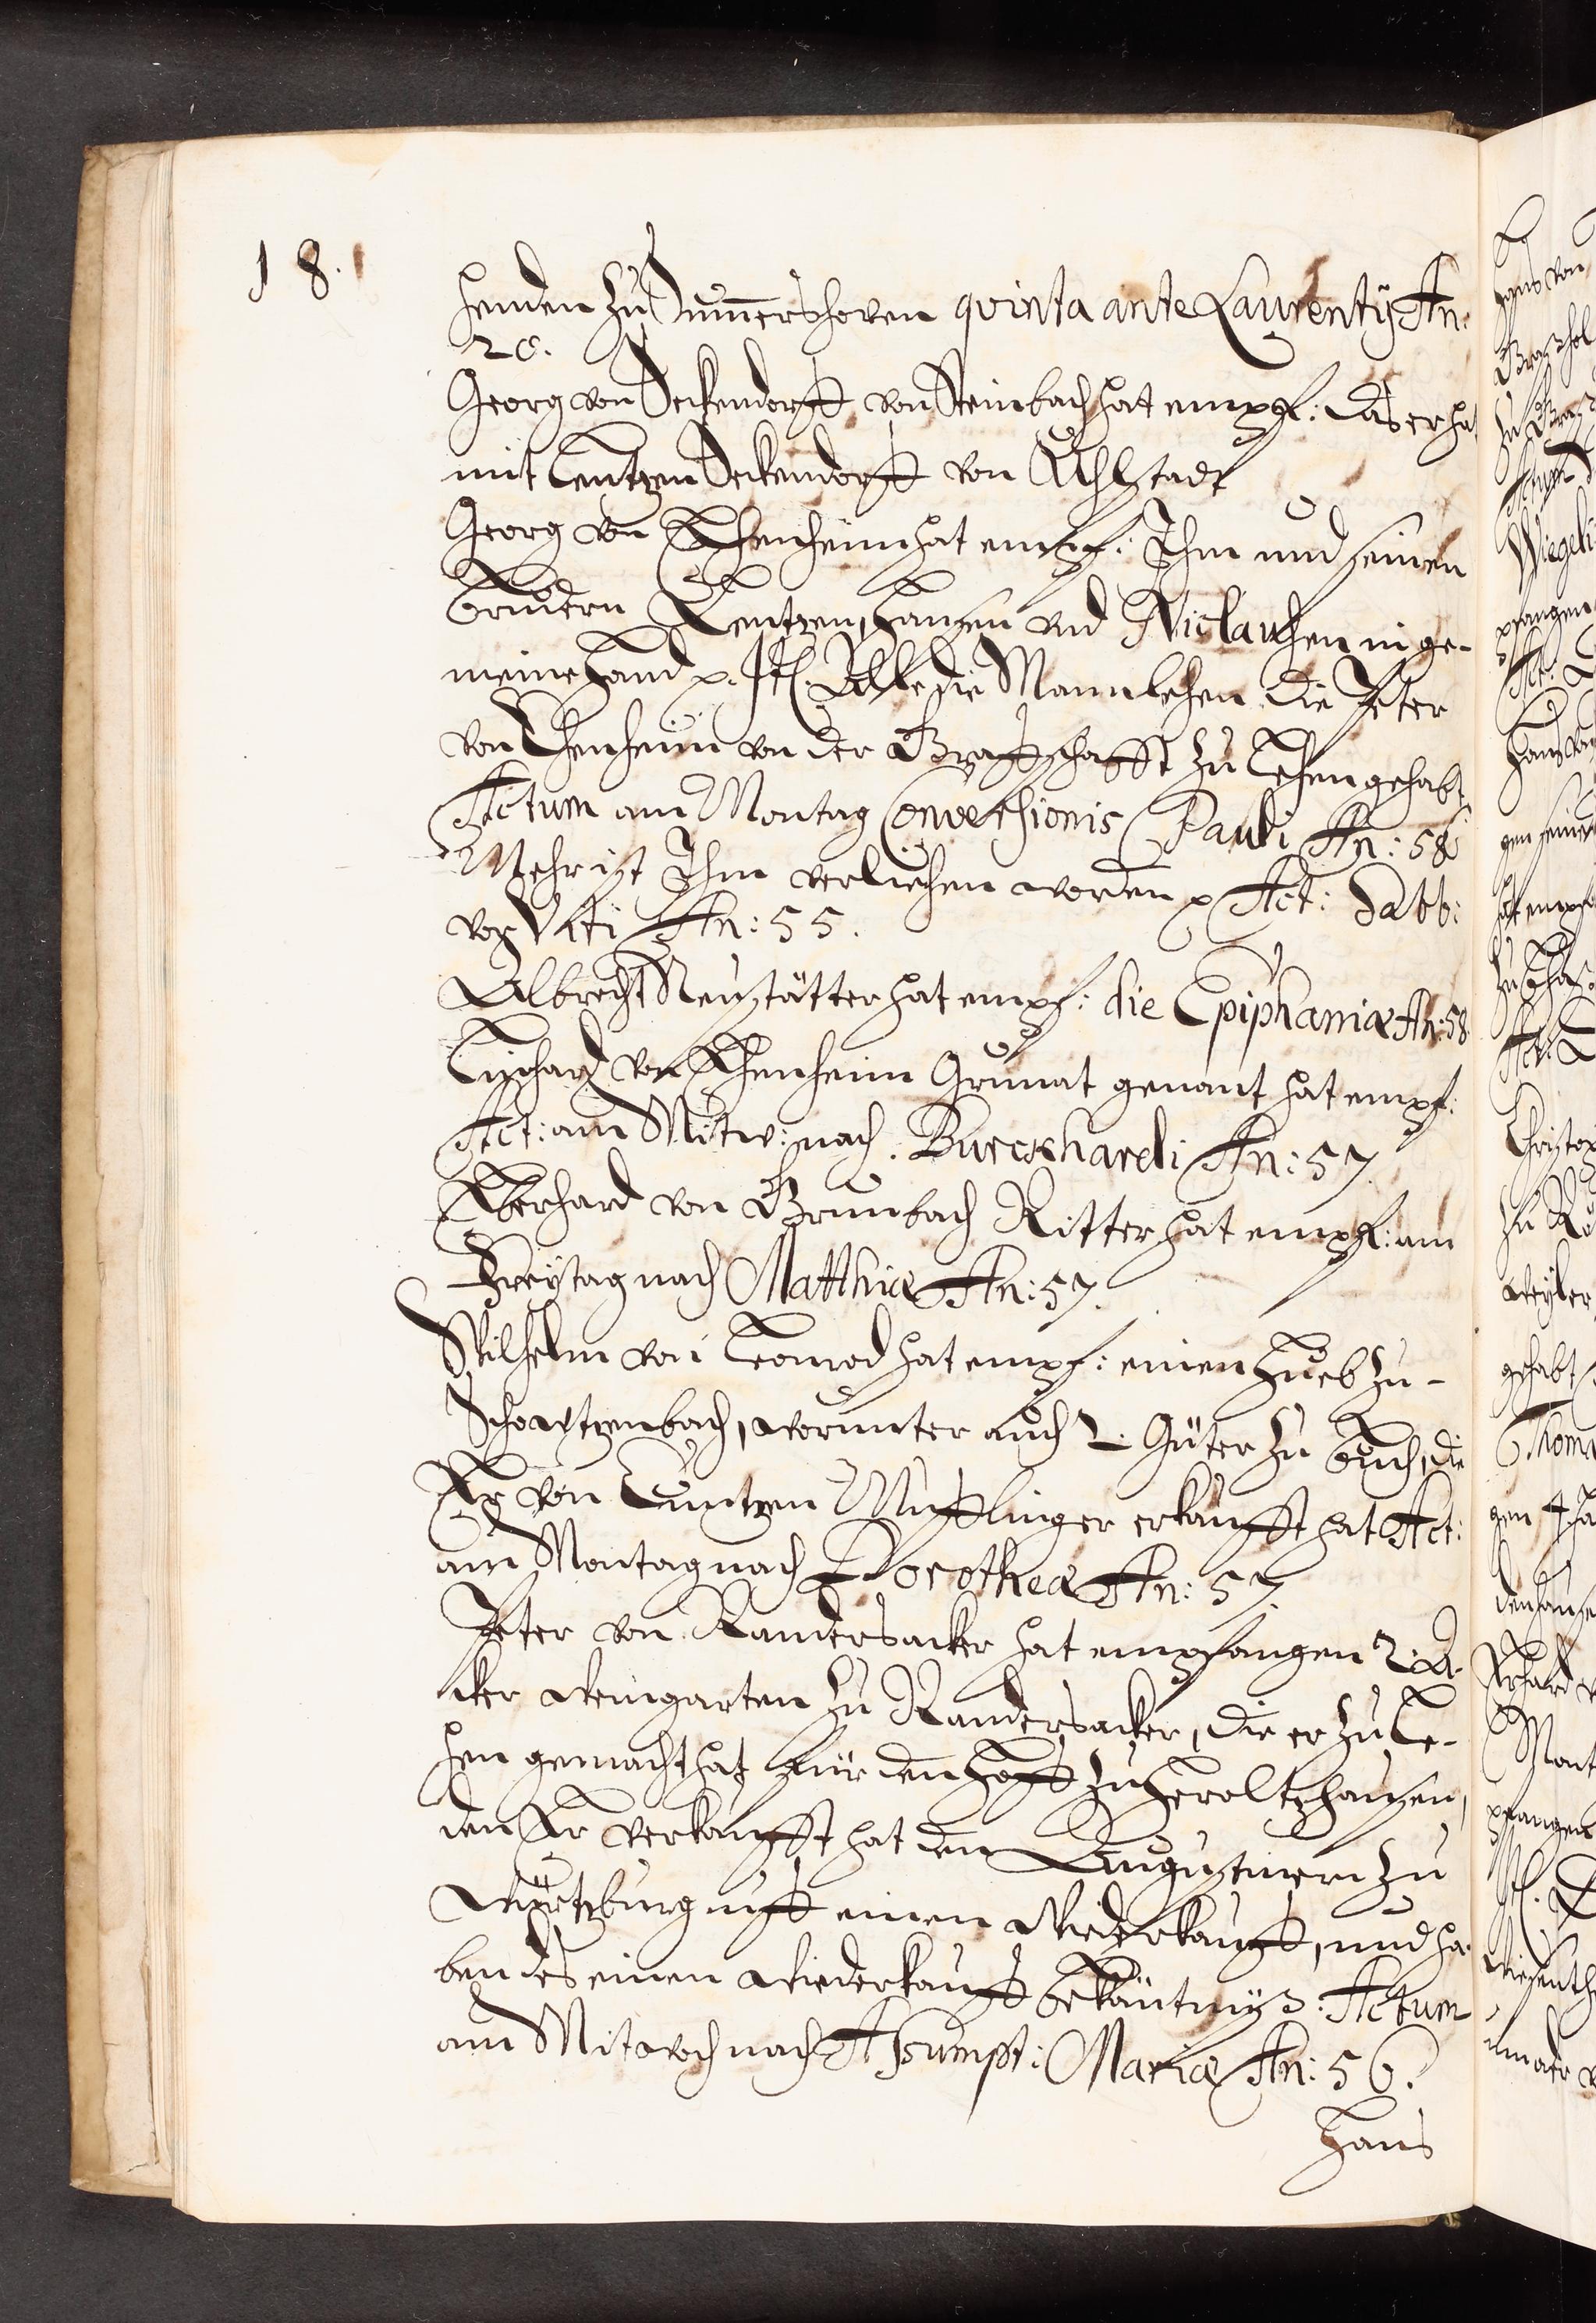 18.
henden zu Summershoven quinta ante Laurentÿ An:
20.
Georg von Seckendorff von Steinbach hat empf: das er hat
mit Contzen Seckendorff von Uhlstadt
Georg von Ehenheim hat empf: Ihm und seinen
Brüdern Contzen, Hansen und Niclausen in ge-
meine Hand p. Itl. Alle die Mannlehen die Peter
von Ehenheim von der Graffschafft zu Lehen gehabt
Actum am Montag Conversionis Pauli An: 58
Mehr ist Ihm verliehen worden p Act: Sabb:
vor Viti An: 55.
Albrecht Neustätter hat empf: die Epiphaniæ An: 58
von Ehenheim Grumat genant hat empf:
Act: am Mitw: nach Burckhardi An: 57.
Eberhard von Grumbach Ritter hat empf: am
Freytag nach Matthiæ An: 57.
Wilhelm von hat empf: einen Hueb zu-
Schwartzenbach, worunter auch 2. Güter zu Buch, die
Er von Cuntzen Mufflinger erkaufft hat Act:
am Montag nach Dorotheæ An: 57.
Peter von Randersacker hat empfangen 2. A-
cker Weingarten zu Randersacker, die er zu Le-
hen gemacht hat für den Hoff zu Heroltzhausen,
den Er verkaufft hat den Augustinern zu
Würtzburg uff einen Wiederkauff, und ha-
ben des einen Wiederkauff bekäntnys: Actum
am Mitwoch nach Assumpt: Mariæ An: 56.
Hans